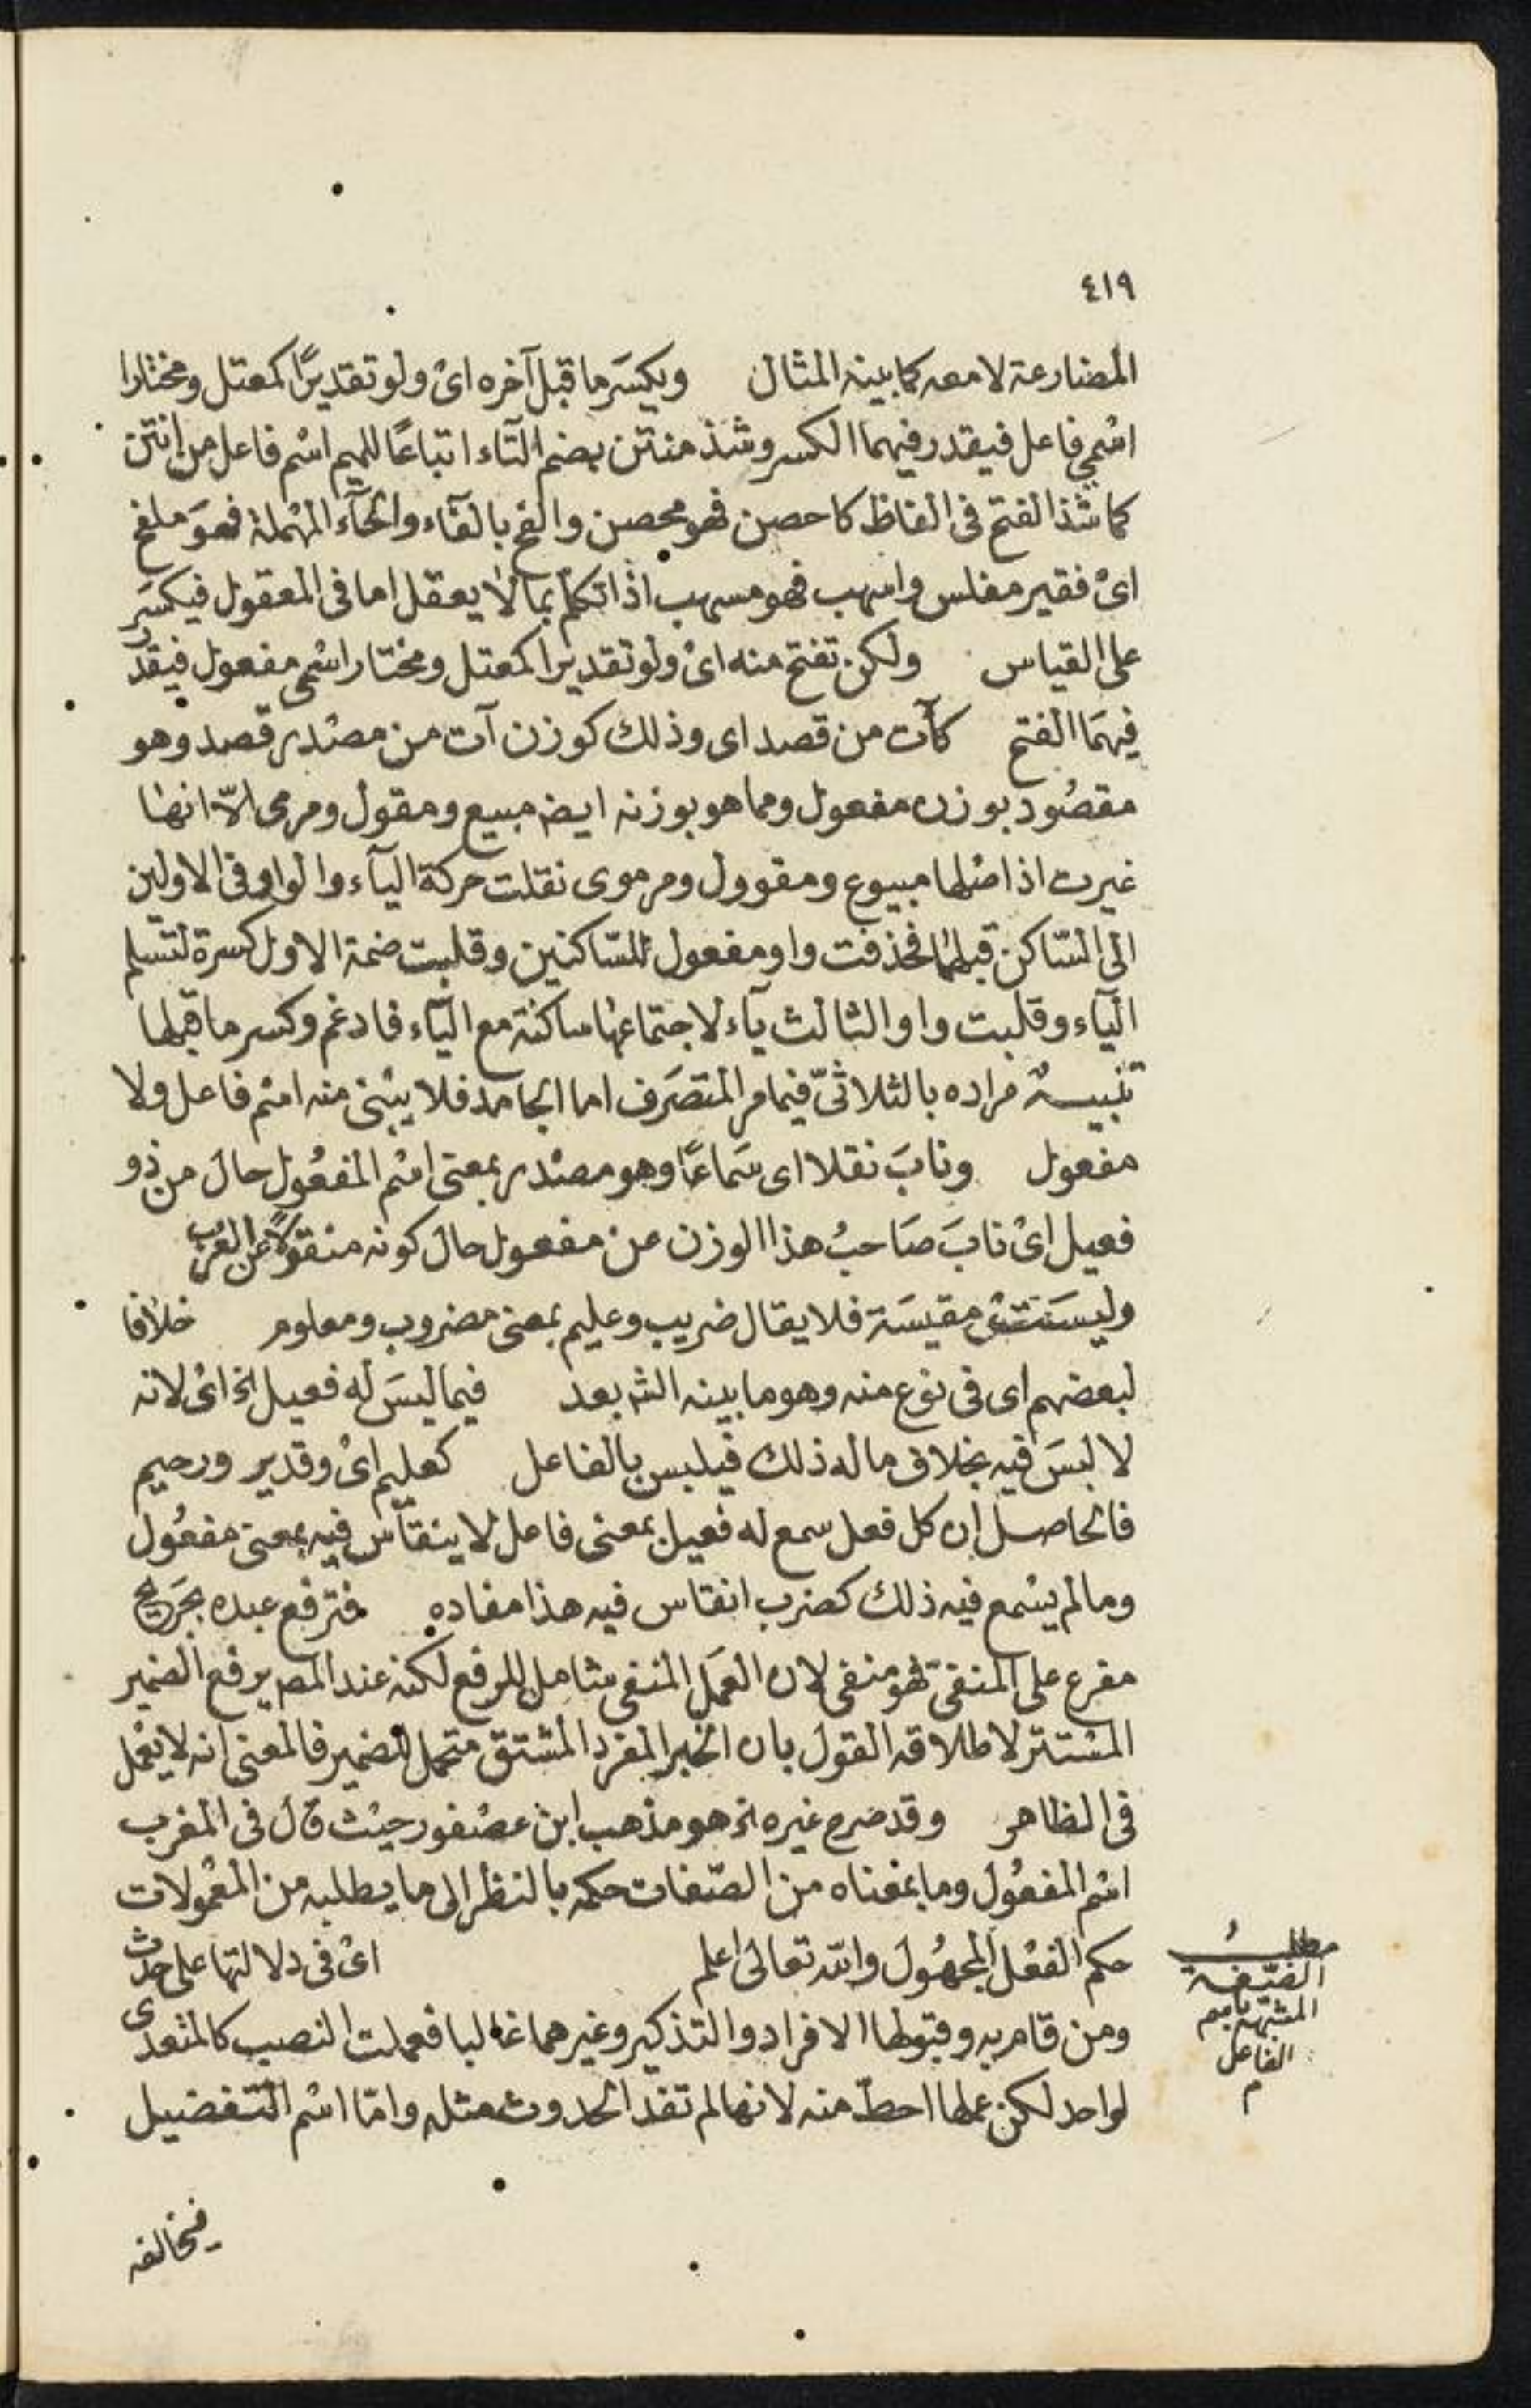 ٤١٩
المضارعة لا معه كما بينه المثال ويكسَر ما قبل آخره اىْ ولو تقديرًا كمعتل ومختارا
اسْمى فاعل فيقدر فيهما الكسر وشذ منتن بضم التآء اتباعًا للميم اسْم فاعل من انتن
كما شذ الفتح فى الفاظ كاحصن فهو محصن والفج بالفآء والحآء المهْملة فهوَ ملفج
اىْ فقير مفلس واسهب فهو مسهب اذا تكلم بما لا يعقل اما فى المعقول فيكسَر
على القياس ولكن تفتح منه اىْ ولو تقديرا كمعتل ومختار اسْمى مفعول فيقدر
فيهمَا الفتح كآت من قصد اى وذلك كوزن آت من مصْدر قصد وهو
مقصُود بوزن مفعول ومما هو بوزنه ايضه مبيع ومقول ومرمى الاّ انها
غيرت اذ اصْلها مبيوع ومقوول ومرموى نقلت حركة اليآء والواو فى الاولين
الى السّاكن قبلهما فحذفت واو مفعول للسّاكنين وقلبت ضمة الاول كسرة لتسْلم
اليآء وقلبت واو الثالث يآء لاجتماعها ساكنة مع اليّاء فادغم وكسر ما قبلها
تنبيه مراده بالثلاثىّ فيما مر المتصَرف اما الجامد فلا يبْنى منه اسْم فاعل ولا
مفعول ونابَ نقلا اى سَماعًا وهو مصْدر بمعنى اسْم المفعُول حال من ذو
فعيل اىْ نابَ صَاحبُ هذا الوزن عن مفعول حال كونه منقولًا عن العرَب
وليسَت مقيسَة فلا يقال ضريب وعليم بمعنى مضروب ومعلوم خلافا
لبعضهم اى فى نوع منه وهو ما بينه الشه بعد فيما ليسَ له فعيل الخ اىْ لانه
لا لبسَ فيه بخلاف ما له ذلك فيلبس بالفاعل كعليم اىْ وقدير ورحيم
فالحاصل ان كل فعل سمع له فعيل بمعنى فاعل لا ينقاس فيه بمعنى مفعُول
وما لم يسْمع فيه ذلك كضرب انقاس فيه هذا مفاده فترفع عبده بجَريح
مفرع على المنفى فهو منفى لان العمَل المنفى شامل للرفع لكنه عند المصه يرفع الضمير
المسْتتر لاطلاقه القول بان الخبر المفرد المشتق متحمل للضمير فالمعنى انه لا يعْمل
فى الظاهر وقد صرح غيره الخ هو مذهب ابن عصْفور حيْث قال فى المغرب
اسْم المفعُول وما بمعْناه من الصّفات حكمه بالنظر الى ما يطلبه من المعْمُولات
حكم الفعْل المجهُول والله تعالى اعلم اىْ فى دلالتها على حدث
ومن قام به وقبولها الافراد والتذكير وغيرهما غالبا فعملت النصب كالمتعدى
لواحد لكن عملها احطّ منه لانها لم تفد الحدوث مثله وامّا اسْم التفضيل
مطلبُ
الصّفة
المشبّهة باسم
الفاعل
م
فيخالفه